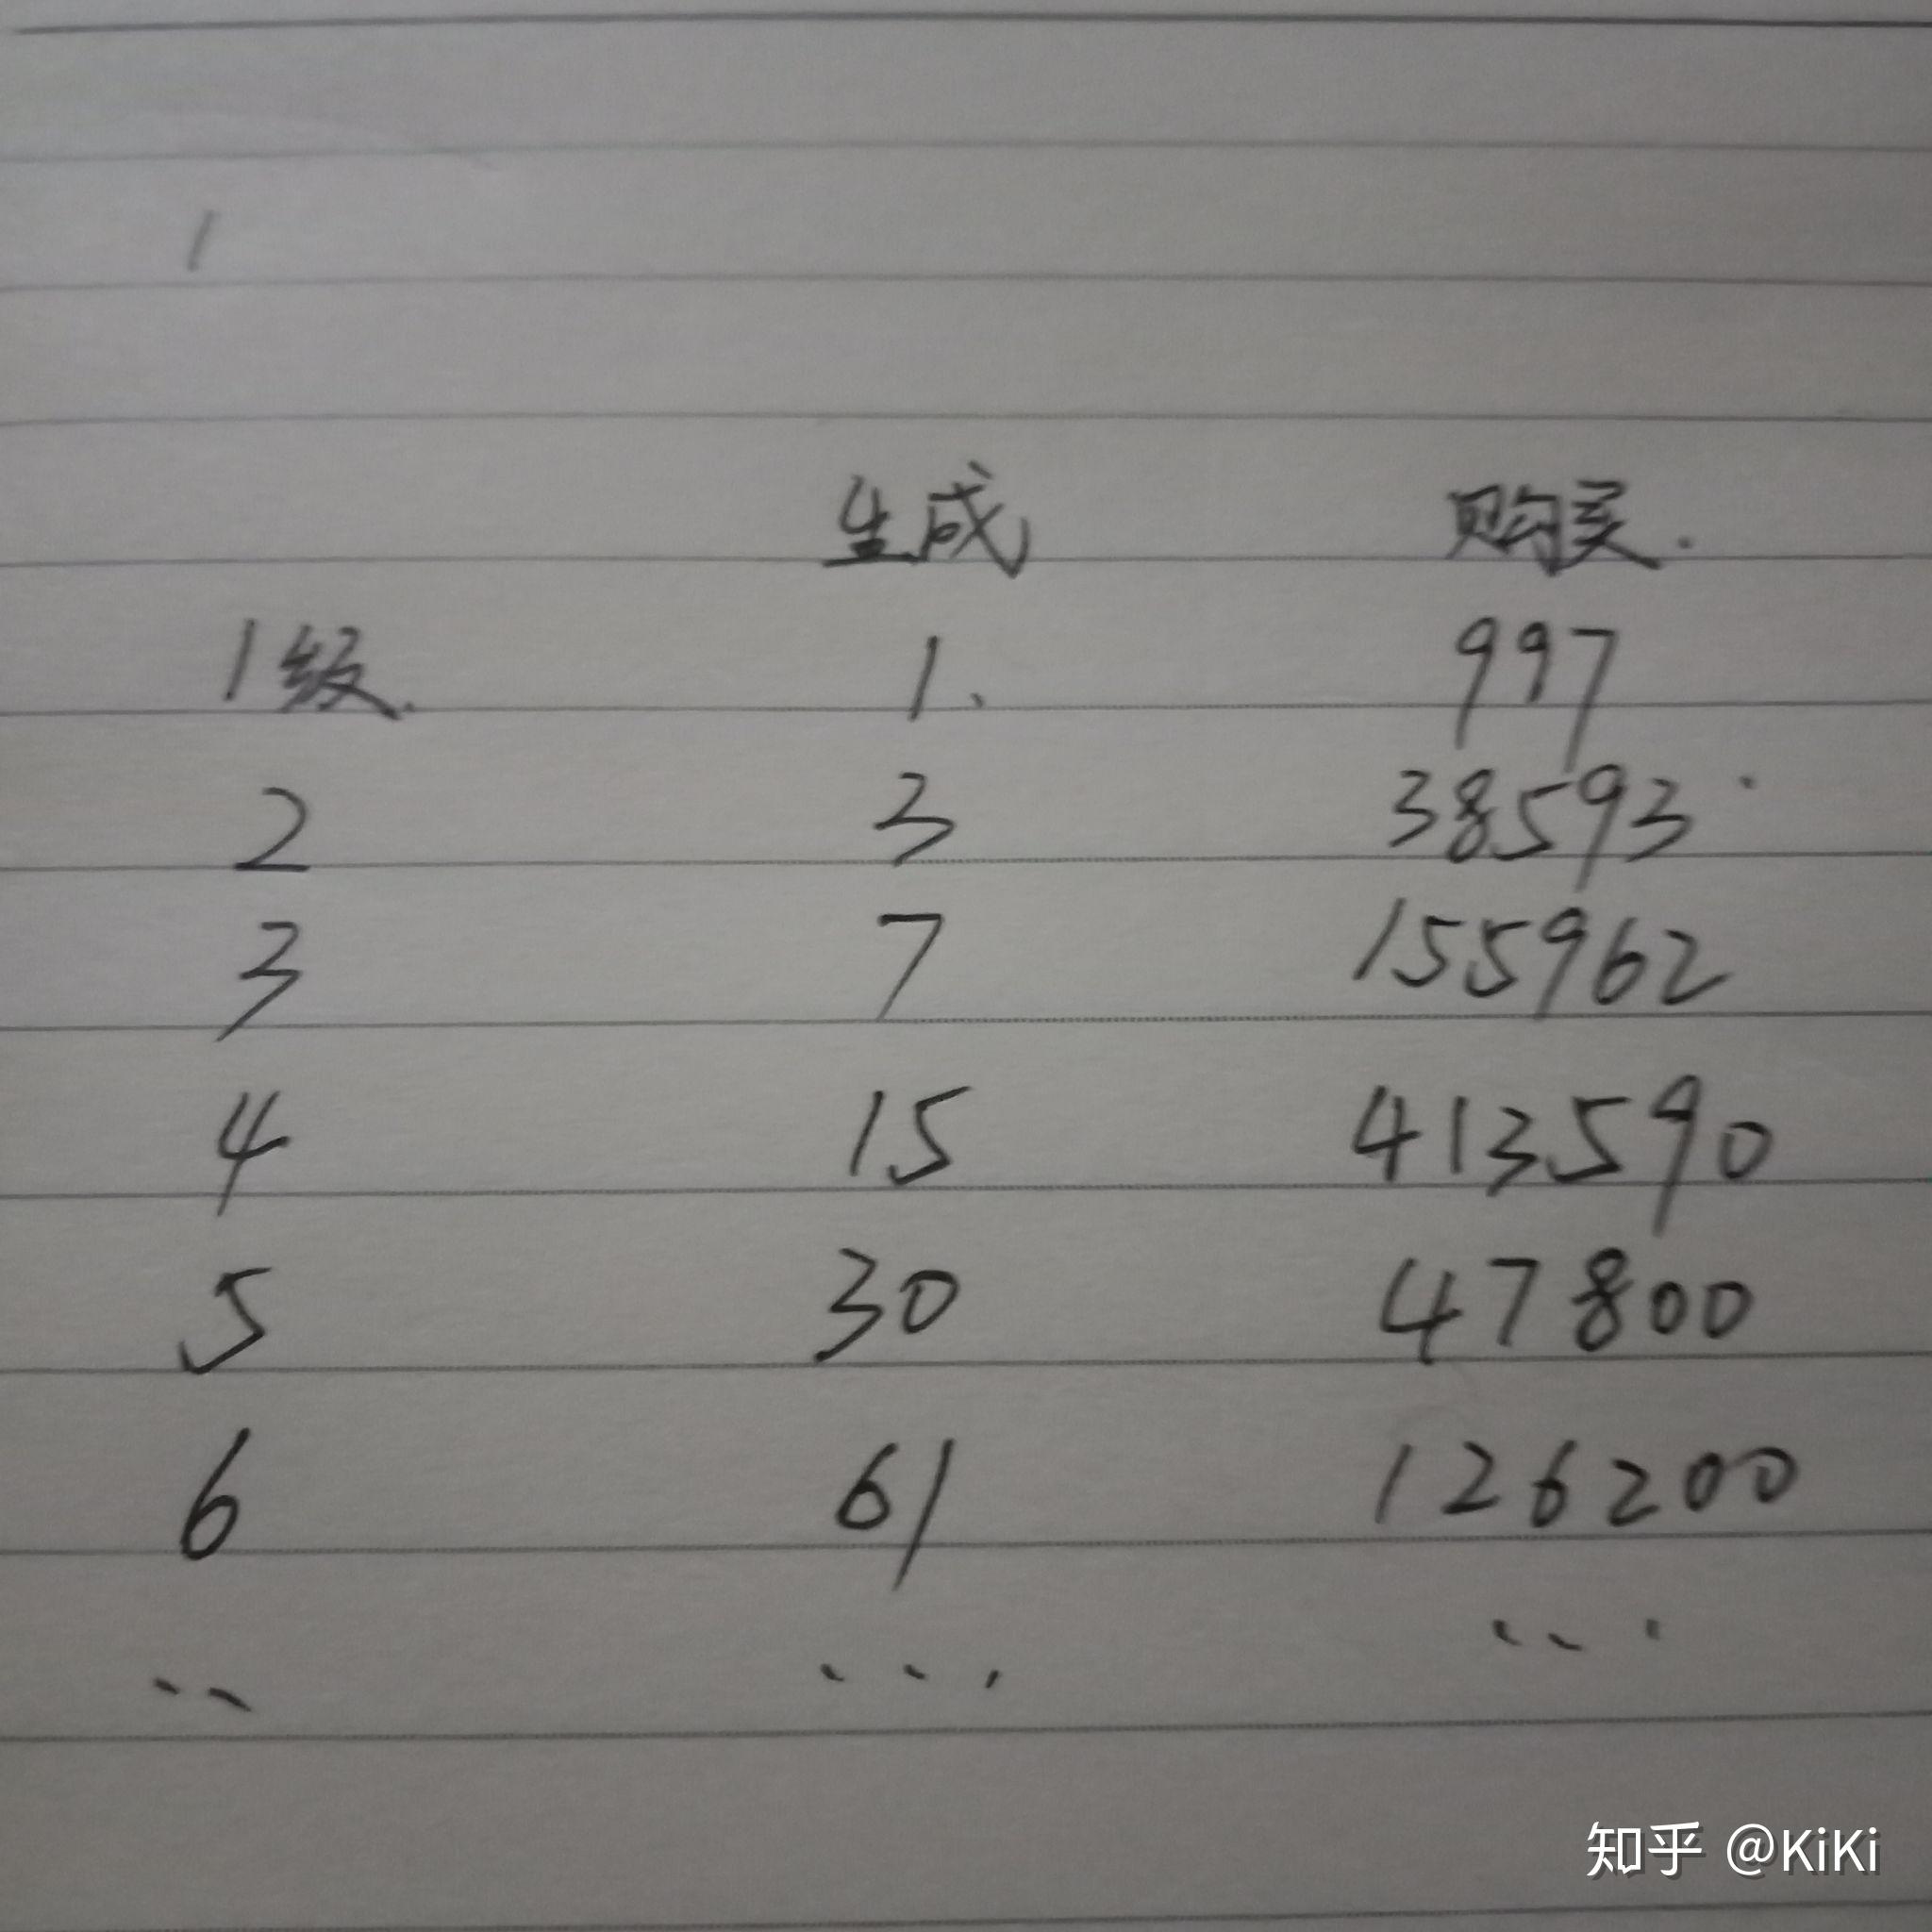 1
生成 购买.
1级. 1. 997
2 3 38593.
3 7 155962
4 15 413590
5 30 47800
6 61 126200
.. ... ...
知乎 @KiKi